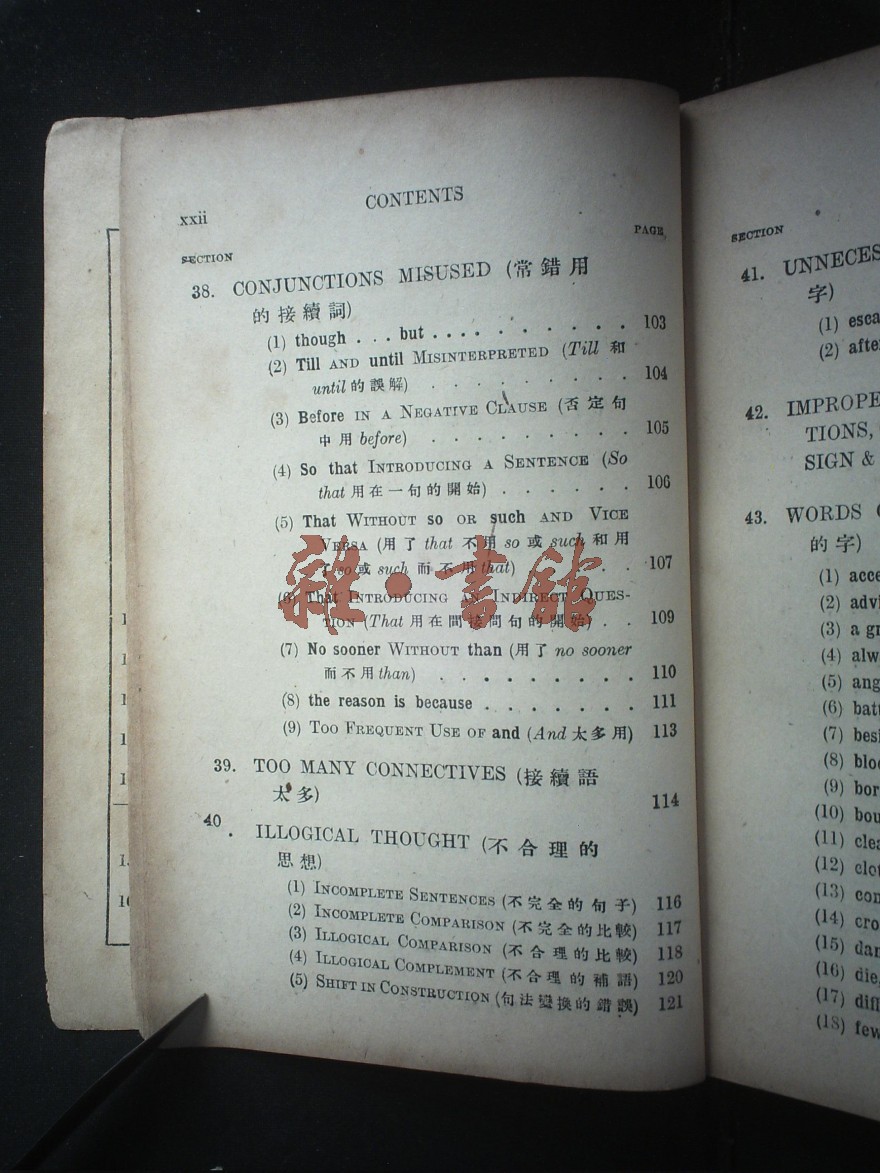 xxii
CONTENTS
SECTION
PAGE
38. CONJUNCTIONS MISUSED (常錯用
的接續詞)
(1) though . . . but . . . . . . . . . . 103
(2) Till AND until MISINTERPRETED (Till 和
until 的誤解) . . . . . . . . . 104
(3) Before IN A NEGATIVE CLAUSE (否定句
中用 before) . . . . . . . . . 105
(4) So that INTRODUCING A SENTENCE (So
that 用在一句的開始) . . . . . . 106
(5) That WITHOUT so OR such AND VICE
VERSA (用了 that 不用 so 或 such 和用
了 so 或 such 而不用 that) . . 107
(6) That INTRODUCING AN INDIRECT QUES-
TION (That 用在間接問句的開始) . . 109
(7) No sooner WITHOUT than (用了 no sooner
而不用 than) . . . . . . . . 110
(8) the reason is because . . . . . . . 111
(9) TOO FREQUENT USE OF and (And 太多用) 113
39. TOO MANY CONNECTIVES (接續語
太多) 114
40. ILLOGICAL THOUGHT (不合理的
思想)
(1) INCOMPLETE SENTENCES (不完全的句子) 116
(2) INCOMPLETE COMPARISON (不完全的比較) 117
(3) ILLOGICAL COMPARISON (不合理的比較) 118
(4) ILLOGICAL COMPLEMENT (不合理的補語) 120
(5) SHIFT IN CONSTRUCTION (句法變換的錯誤) 121
雜·書館
SECTION
41. UNNECES
字)
(1) esca
(2) afte
42. IMPROPE
TIONS,
SIGN &
43. WORDS
的字)
(1) acce
(2) advi
(3) a gr
(4) alw
(5) ang
(6) batt
(7) besi
(8) bloo
(9) bor
(10) bou
(11) clea
(12) clot
(13) con
(14) cro
(15) dan
(16) die,
(17) diff
(18) few